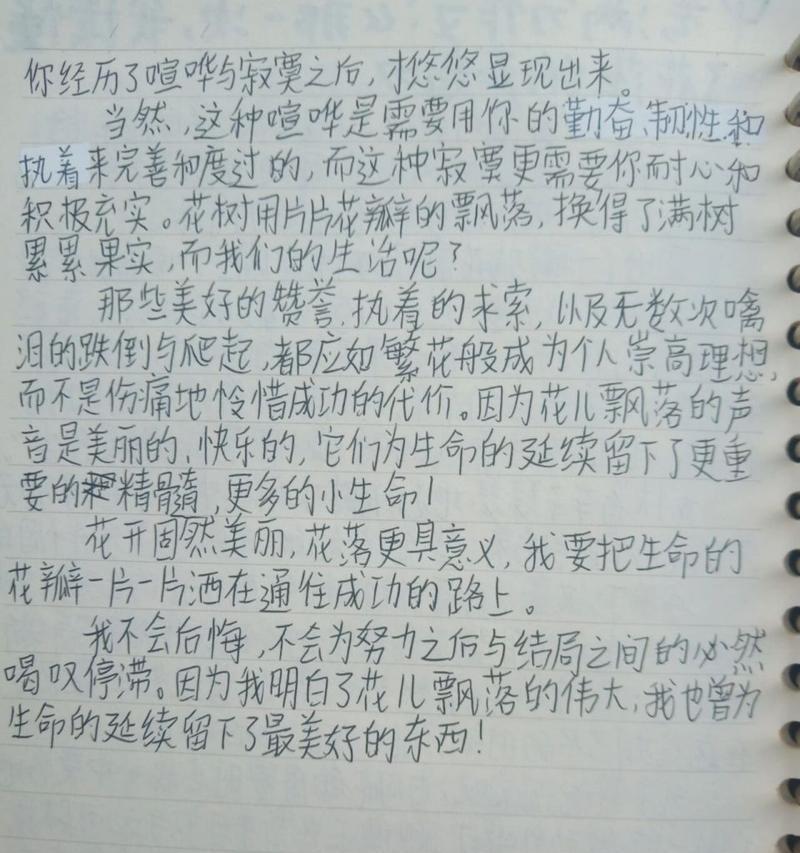 你经历了喧哗与寂寞之后，才悠悠显现出来。
当然，这种喧哗是需要用你的勤奋、韧性和
执着来完善和度过的，而这种寂寞更需要你耐心和
积极充实。花树用片片花瓣的飘落，换得了满树
累累果实，而我们的生活呢？
那些美好的赞誉、执着的求索，以及无数次噙
泪的跌倒与爬起，都应如繁花般成为个人崇高理想，
而不是伤痛地怜惜成功的代价。因为花儿飘落的声
音是美丽的、快乐的，它们为生命的延续留下了更重
要的精髓，更多的小生命！
花开固然美丽，花落更具意义，我要把生命的
花瓣一片一片洒在通往成功的路上。
我不会后悔，不会为努力之后与结局之间的必然
喝叹停滞。因为我明白了花儿飘落的伟大，我也曾为
生命的延续留下了最美好的东西！